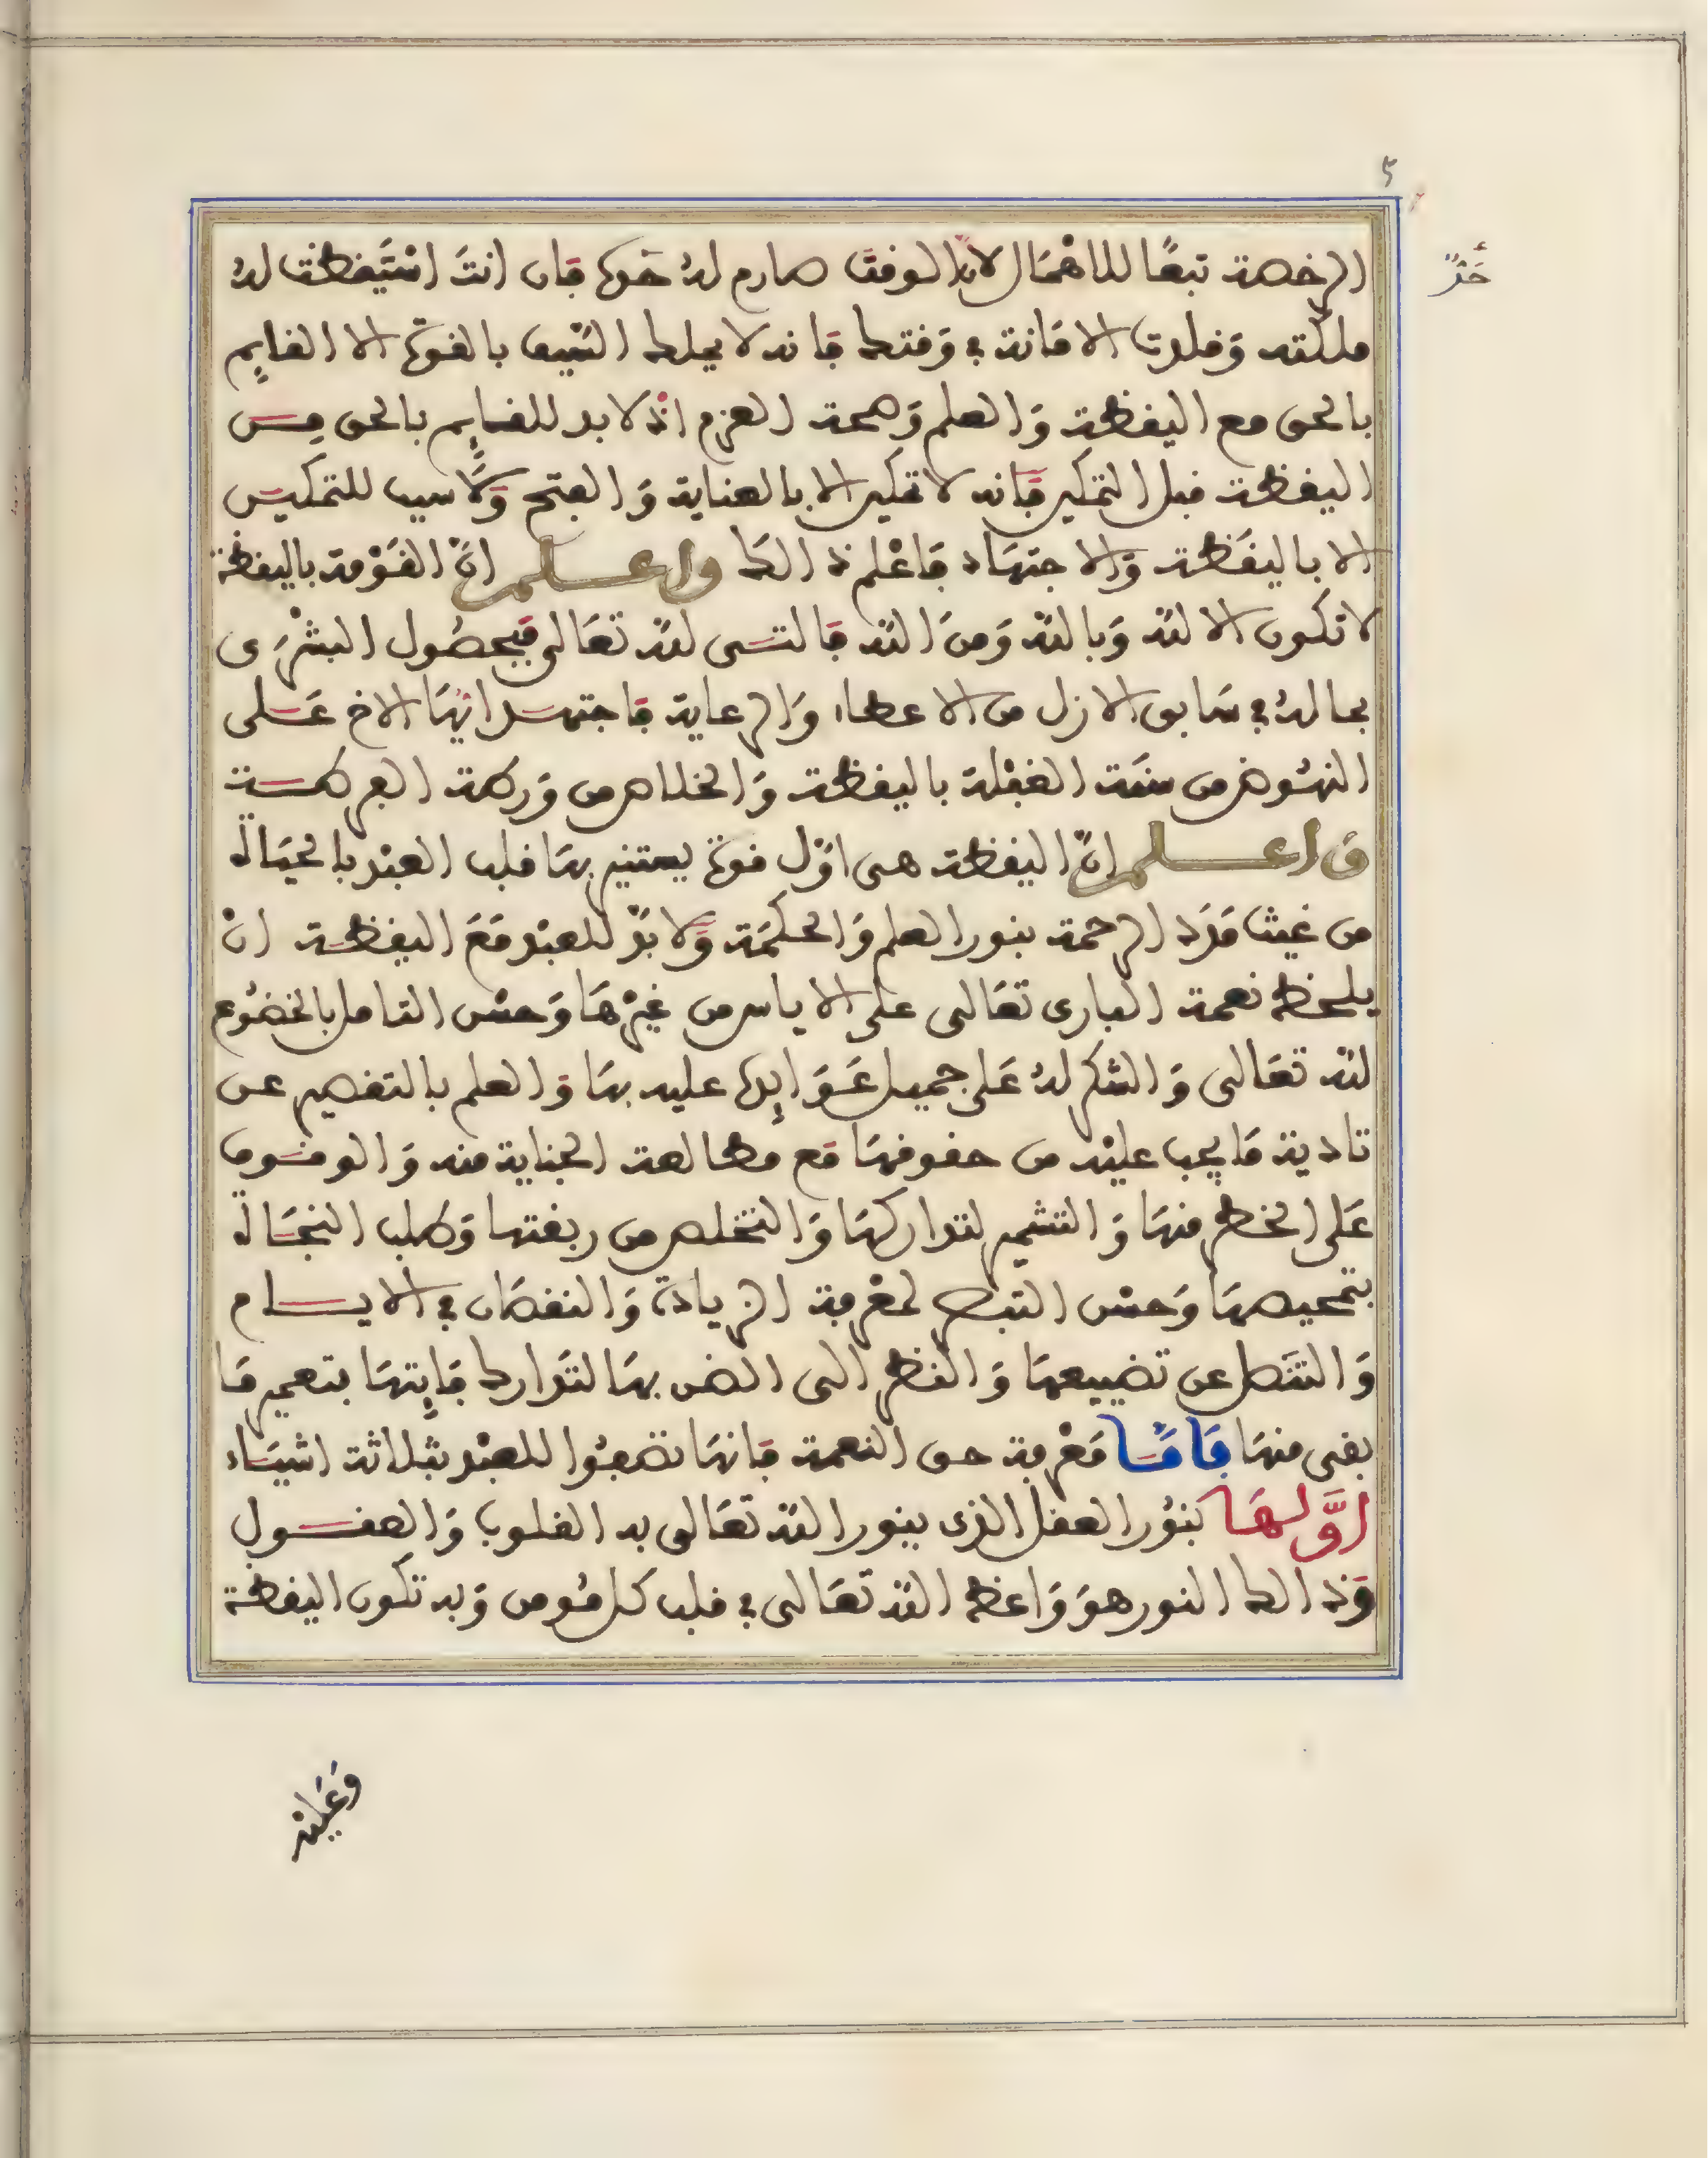 ٥
الرخصة تبعا للاهمال لان الوقت صارم له حد فان انت استيقظت له
ملكته وقلدت الامانة في وقتك فانه لا يملك السيف بالقوة الا القايم
بالحق مع اليقظة والعلم وهمة العزم اذ لا بد للقايم بالحق من
اليقظة قبل التمكين فانه لا تمكين الا بالعناية والفتح ولا سبب للتمكين
الا باليقظة والاجتهاد فاعلم ذالك واعلم ان القومة باليقظة
لا تكون الا لله وبالله ومن الله فالتى لله تعالى فبحصول البشرى
بما له في سابق الازل من الاعطاء والرعاية فاجتهد ايها الاخ على
النهوض من سنة الغفلة باليقظة والخلاص من ورطة الفركة
واعلم ان اليقظة هى اول قوة يستنير بها قلب العبد بالحياة
من غيث مدد الرحمة بنور العلم والحكمة ولا بد للعبد مع اليقظة ان
يلحظ نعمة البارى تعالى على الاياس من غيرها وحسن التامل بالخضوع
لله تعالى والشكر له على جميل عوايده عليه بها والعلم بالتقصير عن
تادية ما يجب عليه من حقوقها مع مطالعة الجناية منه والوقوف
على الخطر منها والتشمير لتداركها والتخلص من ربقتها وطلب النجاة
بتمحيصها وحسن التبصر لمعرفة الزيادة والنقصان في الايام
والتنصل عن تضييعها والنظر الى الضن بها لتدارك فايتها بتعمير ما
بقى منها فاما معرفة حق النعمة فانها تصفوا للعبد بثلاثة اشياء
اولها بنور العقل الذى ينور الله تعالى به القلوب والعقول
وذالك النور هو واعظ الله تعالى في قلب كل مومن وبه تكون اليقظة
وعليه